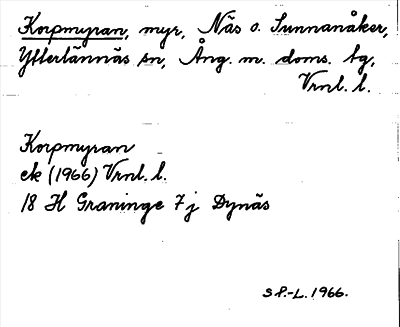 Korpmyran, myr, Näs o. Sunnanåker,
Ytterlännäs sn, Ång. m. doms. tg,
Vrnl. l.
Korpmyran
ek (1966) Vrnl. l.
18 H Graninge 7 j Dynäs
S P.-L. 1966.